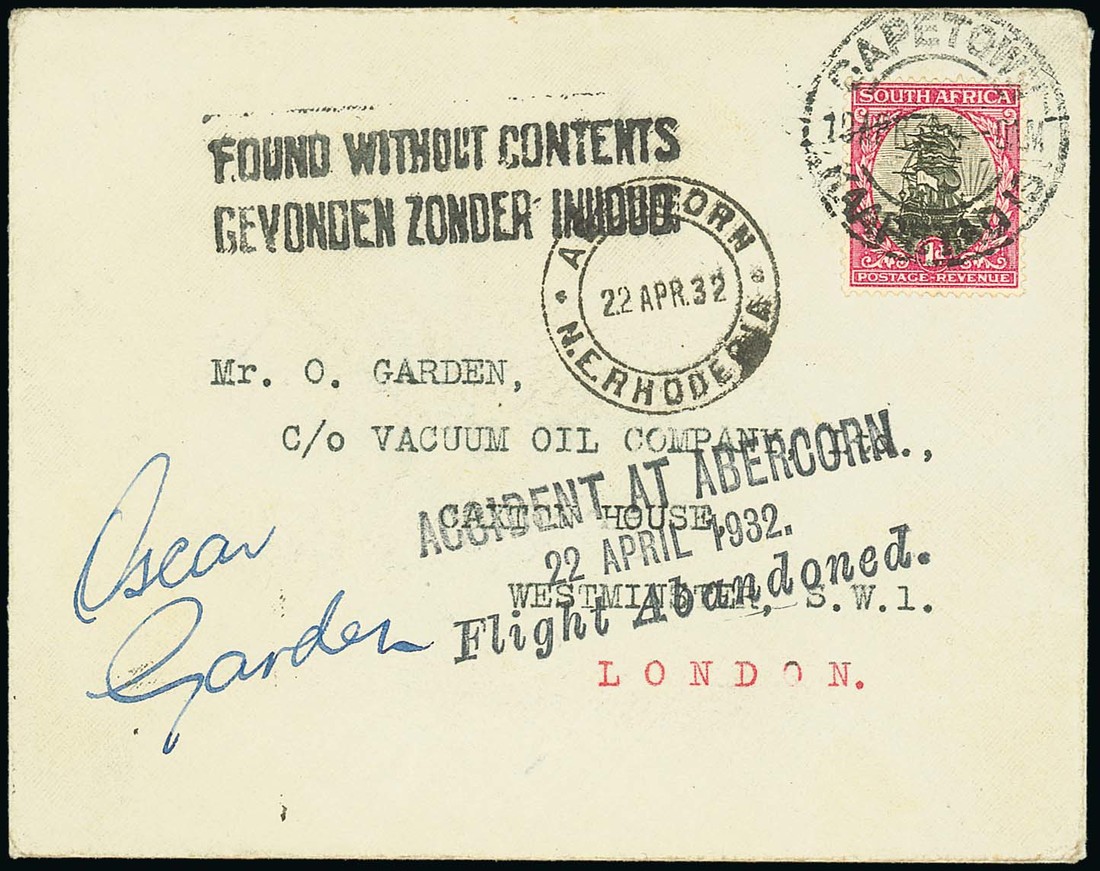 CAPETOWN
SOUTH AFRICA
1d
POSTAGE-REVENUE
FOUND WITHOUT CONTENTS
GEVONDEN ZONDER INHOUD.
ABERCORN
22 APR.32
N.E.RHODESIA
Mr. O. GARDEN,
C/o VACUUM OIL COMPANY, Ltd.,
CAXTON HOUSE,
WESTMINSTER, S.W.1.
LONDON.
ACCIDENT AT ABERCORN.
22 APRIL 1932.
Flight Abandoned.
Oscar
Garden